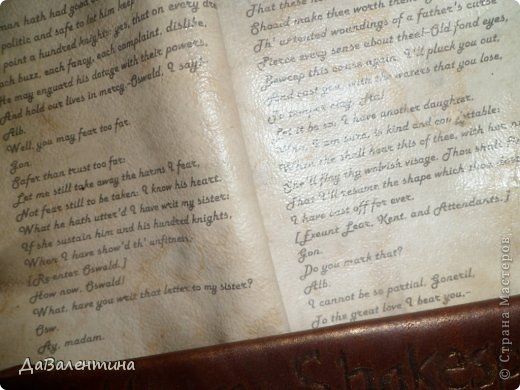 man hath had good
politic and safe to let him keep
point a hundred knights: yes, that on every
Each buzz, each fancy, each complaint, dislike,
He may enguard his dotage with their powers,
And hold our lives in mercy.-Oswald, I say!
Alb.
Well, you may fear too far.
Gon.
Safer than trust too far:
Let me still take away the harms I fear,
Not fear still to be taken: I know his heart.
What he hath utter'd I have writ my sister:
If she sustain him and his hundred knights,
When I have show'd th' unfitness,
[Re-enter Oswald.]
How now, Oswald!
What, have you writ that letter to my sister?
Osw.
Ay, madam.
That these
Should make thee worth them.
Th' untented woundings of a father's curse
Pierce every sense about thee!-Old fond eyes,
Beweep this cause again, I'll pluck you out,
And cast you, with the waters that you lose,
To temper clay. Ha!
Let it be so: I have another daughter,
Who, I am sure, is kind and
When she shall hear this of thee, with her
She'll flay thy wolvish visage. Thou shalt
That I'll resume the shape which thou dost
I have cast off for ever.
[Exeunt Lear, Kent, and Attendants.]
Gon.
Do you mark that?
Alb.
I cannot be so partial, Goneril,
To the great love I bear you,-
Shakes
ДаВалентина
© Страна Мастеров